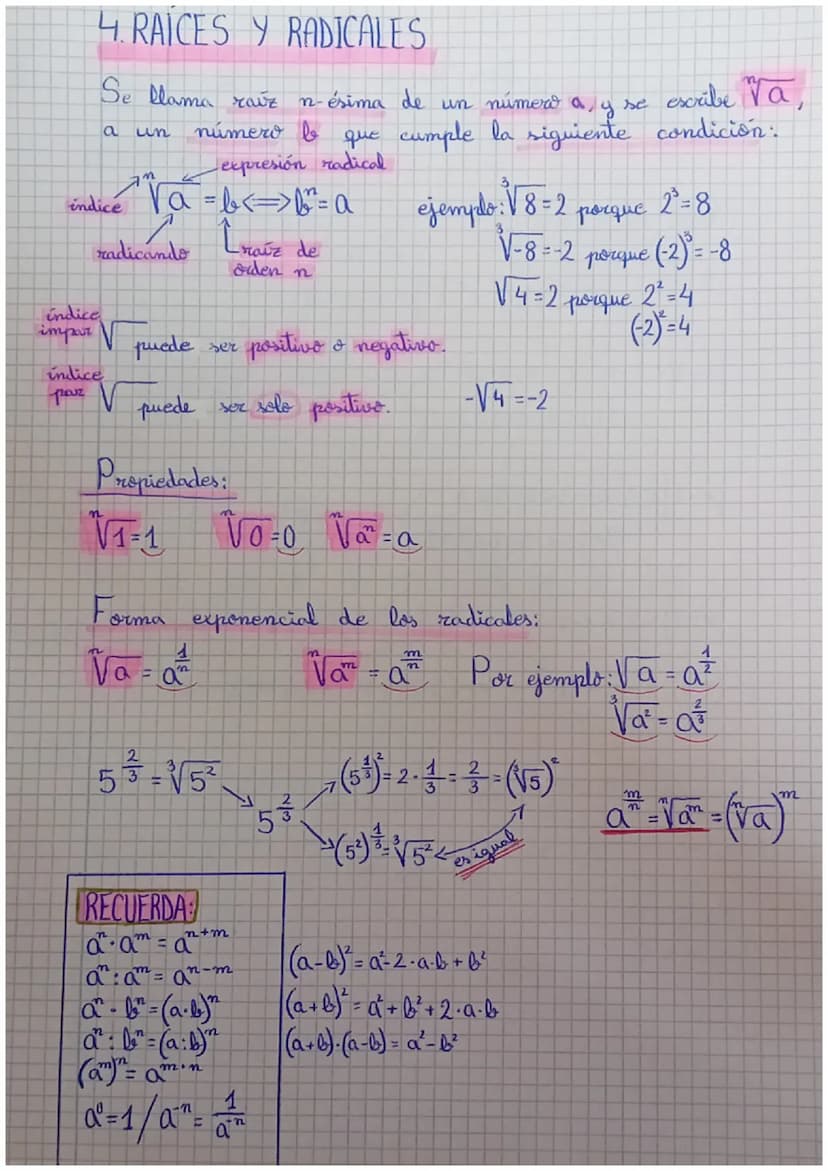 4. RAÍCES Y RADICALES
Se llama raíz n-ésima de un número a, y se escribe ⁿ√a,
a un número b que cumple la siguiente condición:
expresión radical
índice ⁿ√a = b <=> bⁿ = a
radicando
raíz de
orden n
ejemplo: ³√8 = 2 porque 2³ = 8
³√-8 = -2 porque (-2)³ = -8
√4 = 2 porque 2² = 4
(-2)² = 4
índice
impar √ puede ser positivo o negativo.
índice
par √ puede ser solo positivo. -√4 = -2
Propiedades:
ⁿ√1 = 1 ⁿ√0 = 0 ⁿ√aⁿ = a
Forma exponencial de los radicales:
ⁿ√a = a^(1/n) ⁿ√a^m = a^(m/n) Por ejemplo: √a = a^(1/2)
³√a² = a^(2/3)
5^(2/3) = ³√5²
5^(2/3)
(5^(1/3))² = 2 · 1/3 = 2/3 = (³√5)²
(5²)^(1/3) = ³√5² es igual
a^(m/n) = ⁿ√a^m = (ⁿ√a)^m
RECUERDA:
aⁿ · a^m = a^(n+m)
aⁿ : a^m = a^(n-m)
aⁿ · bⁿ = (a·b)ⁿ
aⁿ : bⁿ = (a:b)ⁿ
(a^m)ⁿ = a^(m·n)
a⁰ = 1 / a^-n = 1/a^-n
(a-b)² = a² - 2·a·b + b²
(a+b)² = a² + b² + 2·a·b
(a+b)·(a-b) = a² - b²